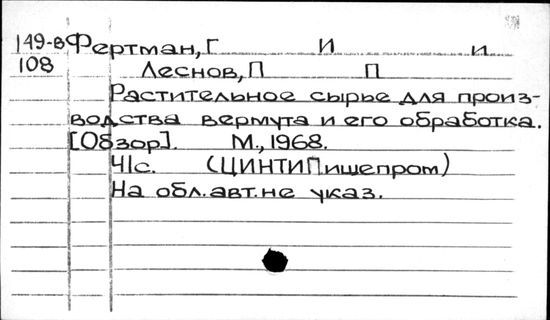 149-в Фертман, Г И и
108 Леснов, П П
Растительное сырье для произ-
водства вермута и его обработка.
[Обзор]. М., 1968.
41с. (ЦИНТИПищепром)
На обл. авт. не указ.